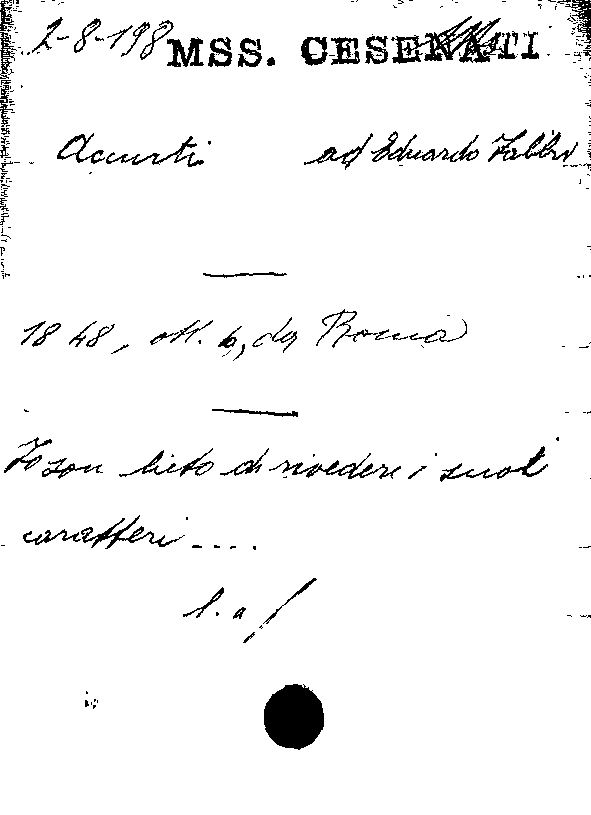 2-8-198 MSS. CESENATI
Accurti ad Eduardo Fabbri
1848, ott. 6, da Roma
Io son lieto di rivedere i suoi
caratteri ....
l. a f